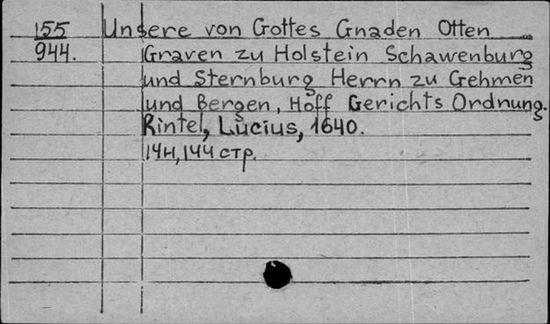 155 Unsere von Gottes Gnaden Otten
944. Graven zu Holstein Schawenburg
und Sternburg Herrn zu Gehmen
und Bergen, Hoff Gerichts Ordnung.
Rintel, Lucius, 1640.
14н, 144 стр.